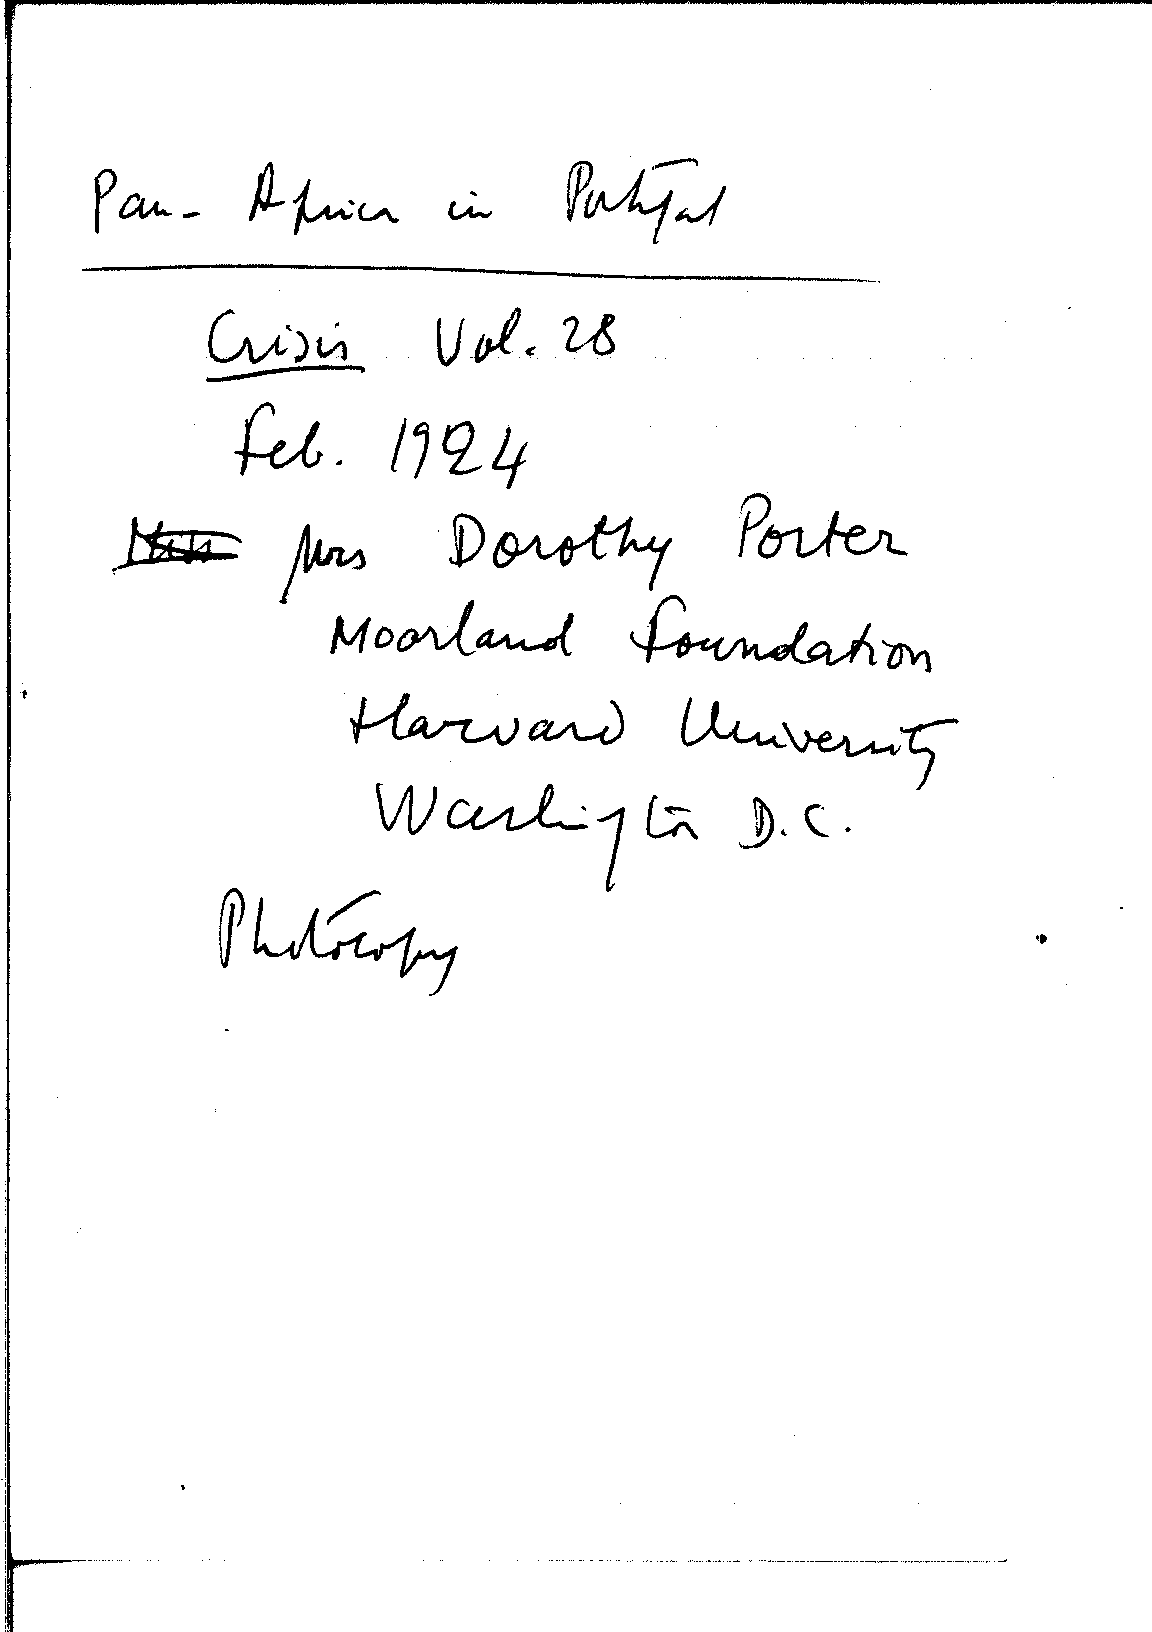 Pan-Africa in Portugal
Crisis Vol. 28
Feb. 1924
Mrs Dorothy Porter
Moorland Foundation
Harvard University
Washington D.C.
Photocopy